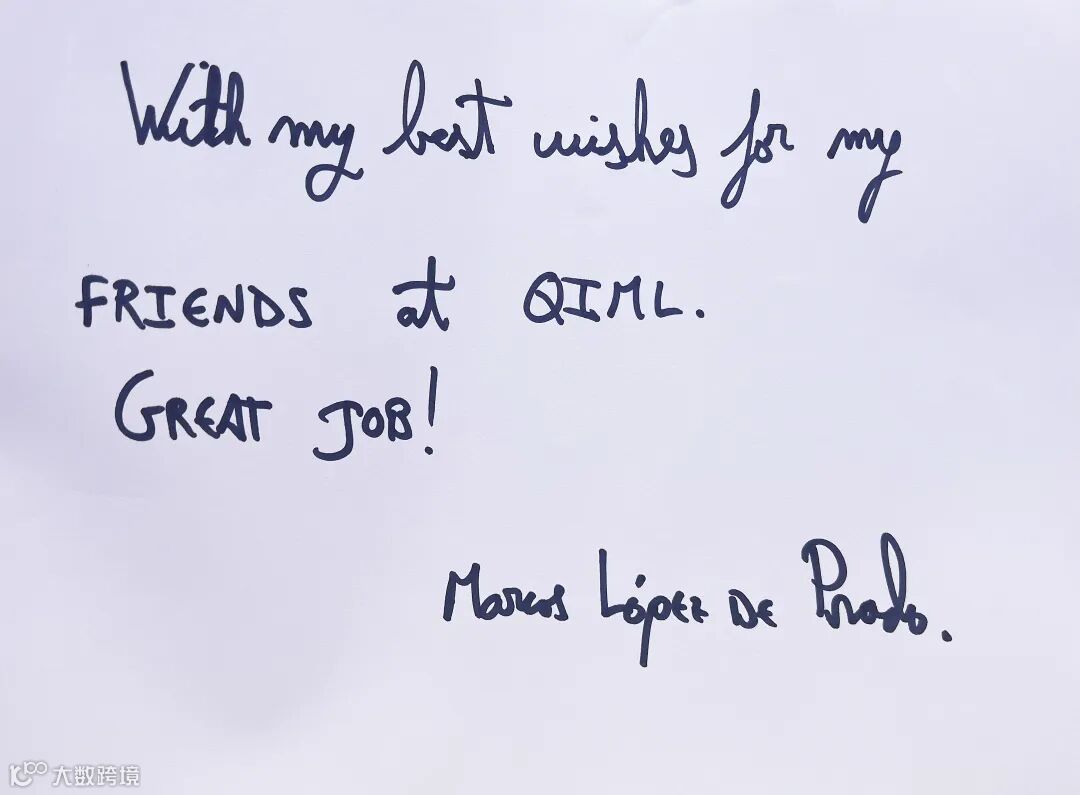 With my best wishes for my
FRIENDS at QIML.
GREAT JOB!
Marcos López DE Prado.
大数跨境